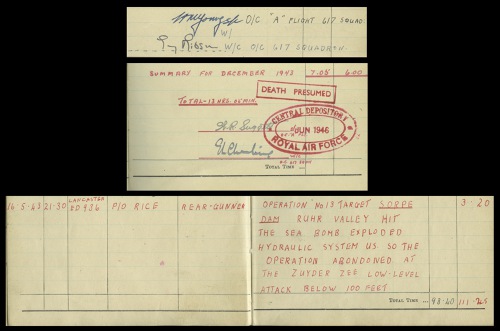 O/C "A" FLIGHT 617 SQUAD
W/
W/C O/C 617 SQUADRON.
SUMMARY FOR DECEMBER 1943 7.05 6.00
DEATH PRESUMED
TOTAL-13 HRS. 05 MIN.
CENTRAL DEPOSITORY
JUN 1946
ROYAL AIR FORCE
TOTAL TIME
16-5-43 21-30 LANCASTER ED936 P/O RICE REAR-GUNNER OPERATION No 13 TARGET SORPE 3-20
DAM RUHR VALLEY HIT
THE SEA BOMB EXPLODED
HYDRAULIC SYSTEM US SO THE
OPERATION ABONDONED AT
THE ZUYDER ZEE LOW-LEVEL
ATTACK BELOW 100 FEET
TOTAL TIME ... 98.40 111.25